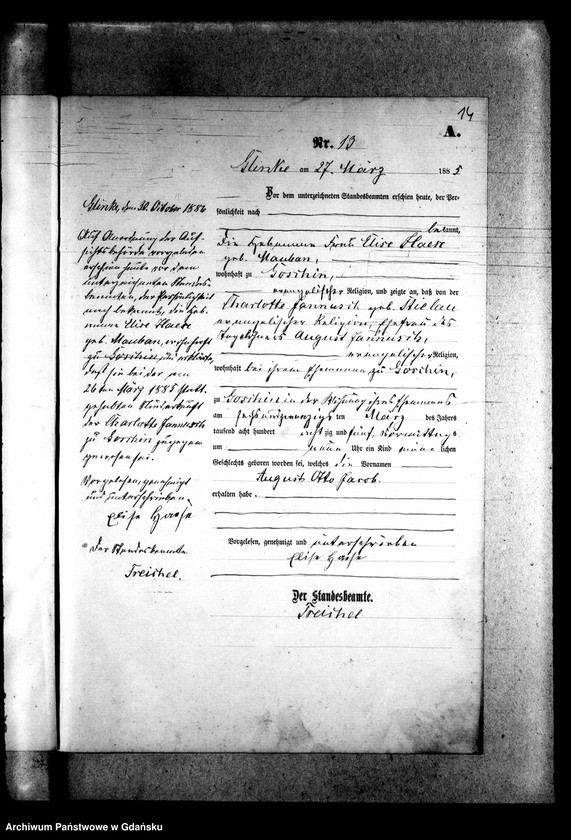 14
A.
Nr. 13
Glinke am 27. März 1885
Vor dem unterzeichneten Standesbeamten erschien heute, der Per-
sönlichkeit nach
bekannt,
die Hebamme Frau Elise Haase
geb. Mauban,
wohnhaft zu Goschin,
evangelischer Religion, und zeigte an, daß von der
Charlotte Jannusch geb. Stielau
evangelischer Religion, Ehefrau des
Tagelöhners August Jannusch,
evangelischer Religion,
wohnhaft bei ihrem Ehemanne zu Goschin,
zu Goschin in der Wohnung ihres Ehemannes
am sechsundzwanzigsten März des Jahres
tausend acht hundert achtzig und fünf, Vormittags
um neun Uhr ein Kind männlichen
Geschlechts geboren worden sei, welches die Vornamen
August Otto Jacob.
erhalten habe.
Vorgelesen, genehmigt und unterschrieben
Elise Haase
Der Standesbeamte.
Treichel
Glinke, den 30. October 1886
Auf Anordnung der Auf-
sichtsbehörde vorgeladen
erschien heute vor dem
unterzeichneten Standes-
beamten, der Persönlichkeit
nach bekannt, die Heb-
amme Elise Haase
geb. Mauban, wohnhaft
zu Goschin und erklärte,
daß sie bei der am
26ten März 1885 statt-
gehabten Niederkunft
der Charlotte Jannusch
zu Goschin zugegen
gewesen sei.
Vorgelesen, genehmigt
und unterschrieben.
Elise Haase
Der Standesbeamte
Treichel.
Archiwum Państwowe w Gdańsku